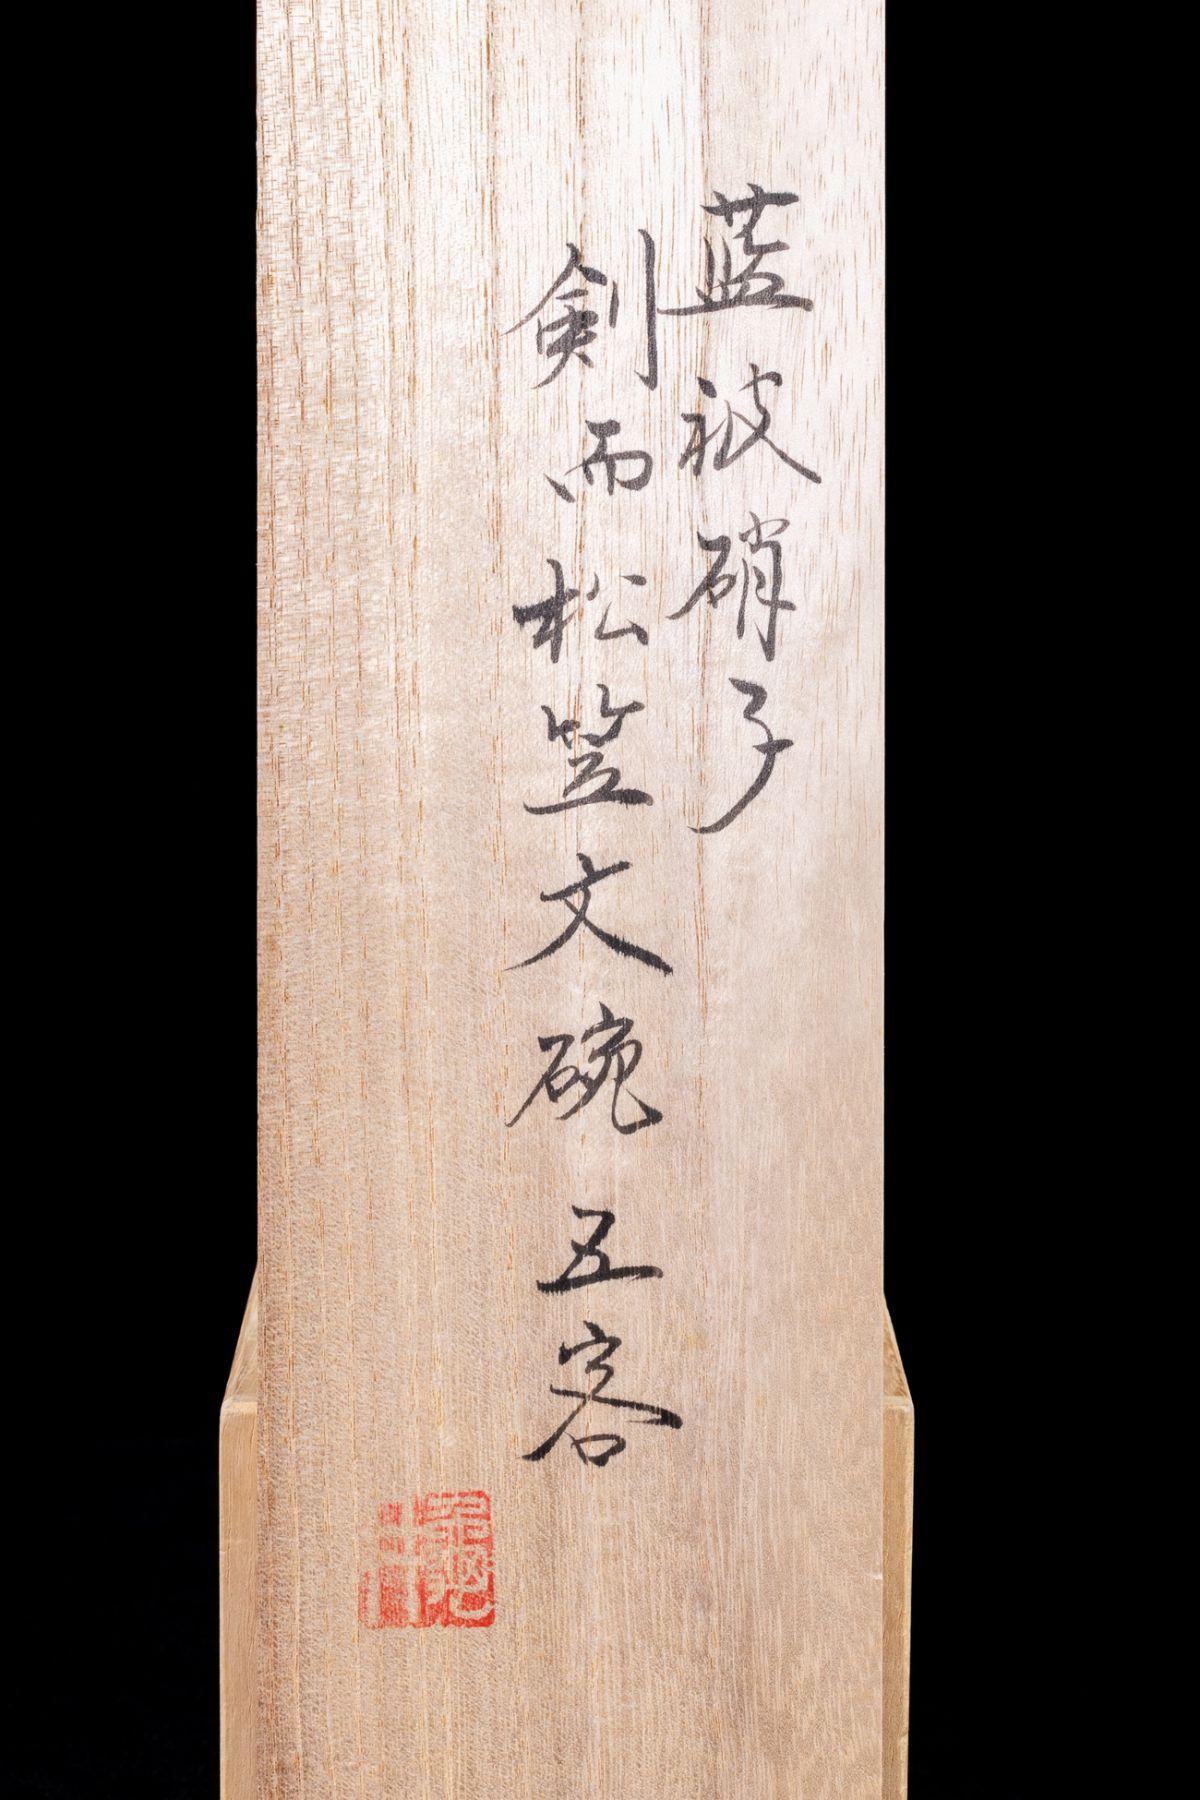 藍被硝子
剣而松笠文碗 五客